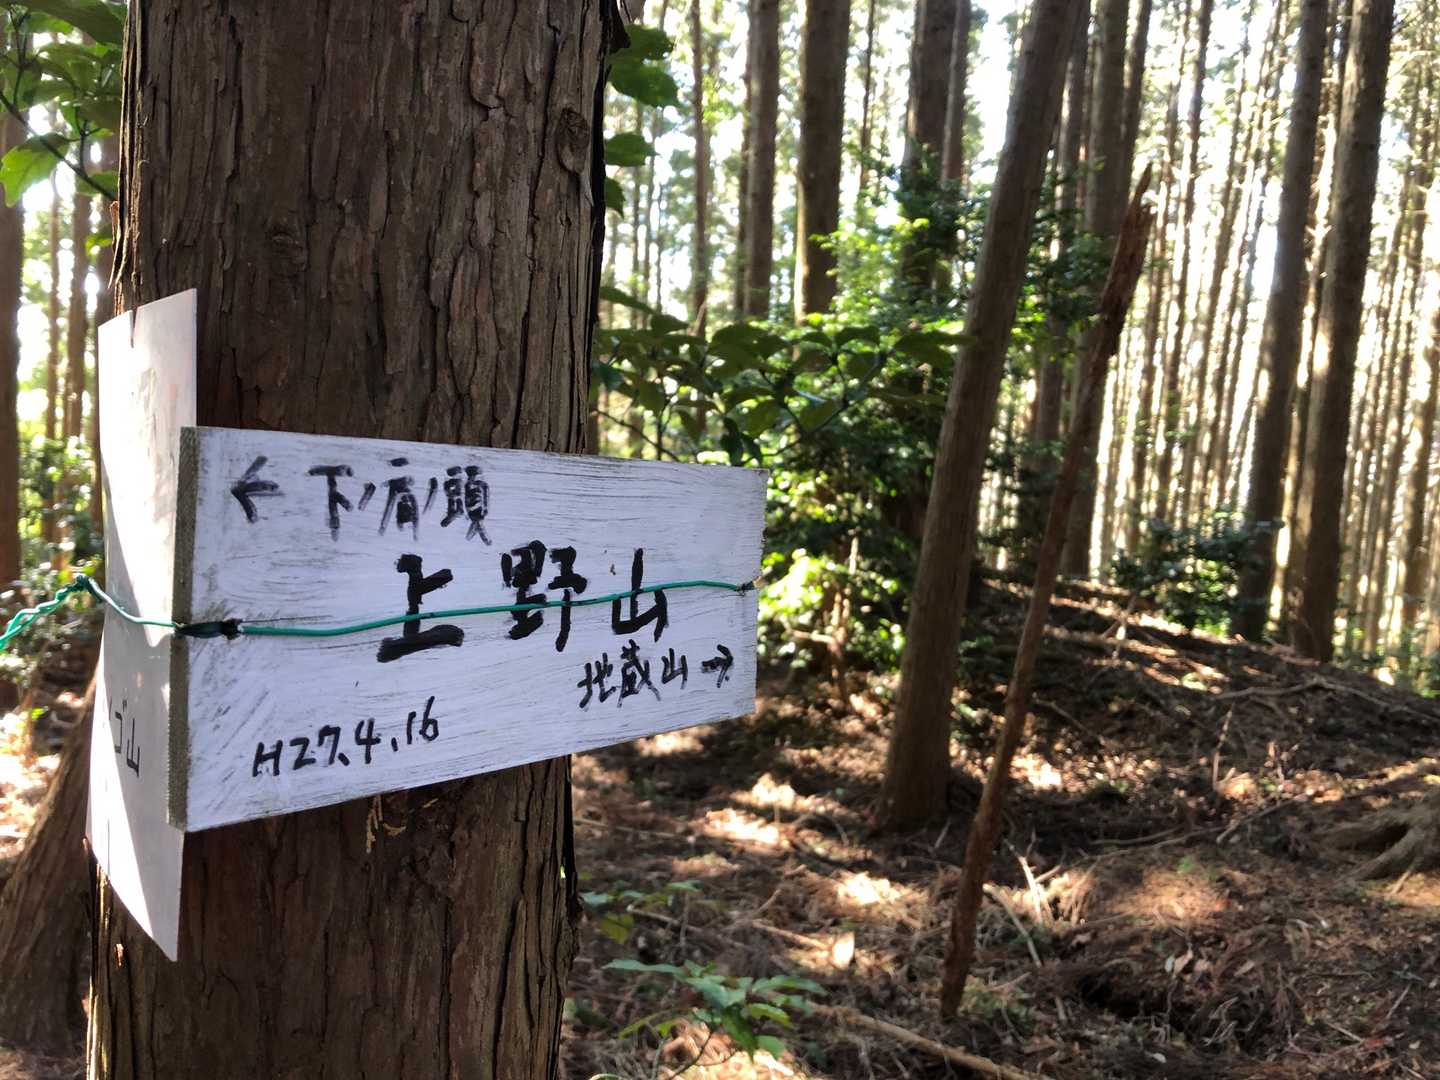 ← 下ノ肩ノ頭
上野山
地蔵山 →
H27.4.16
ゴ山